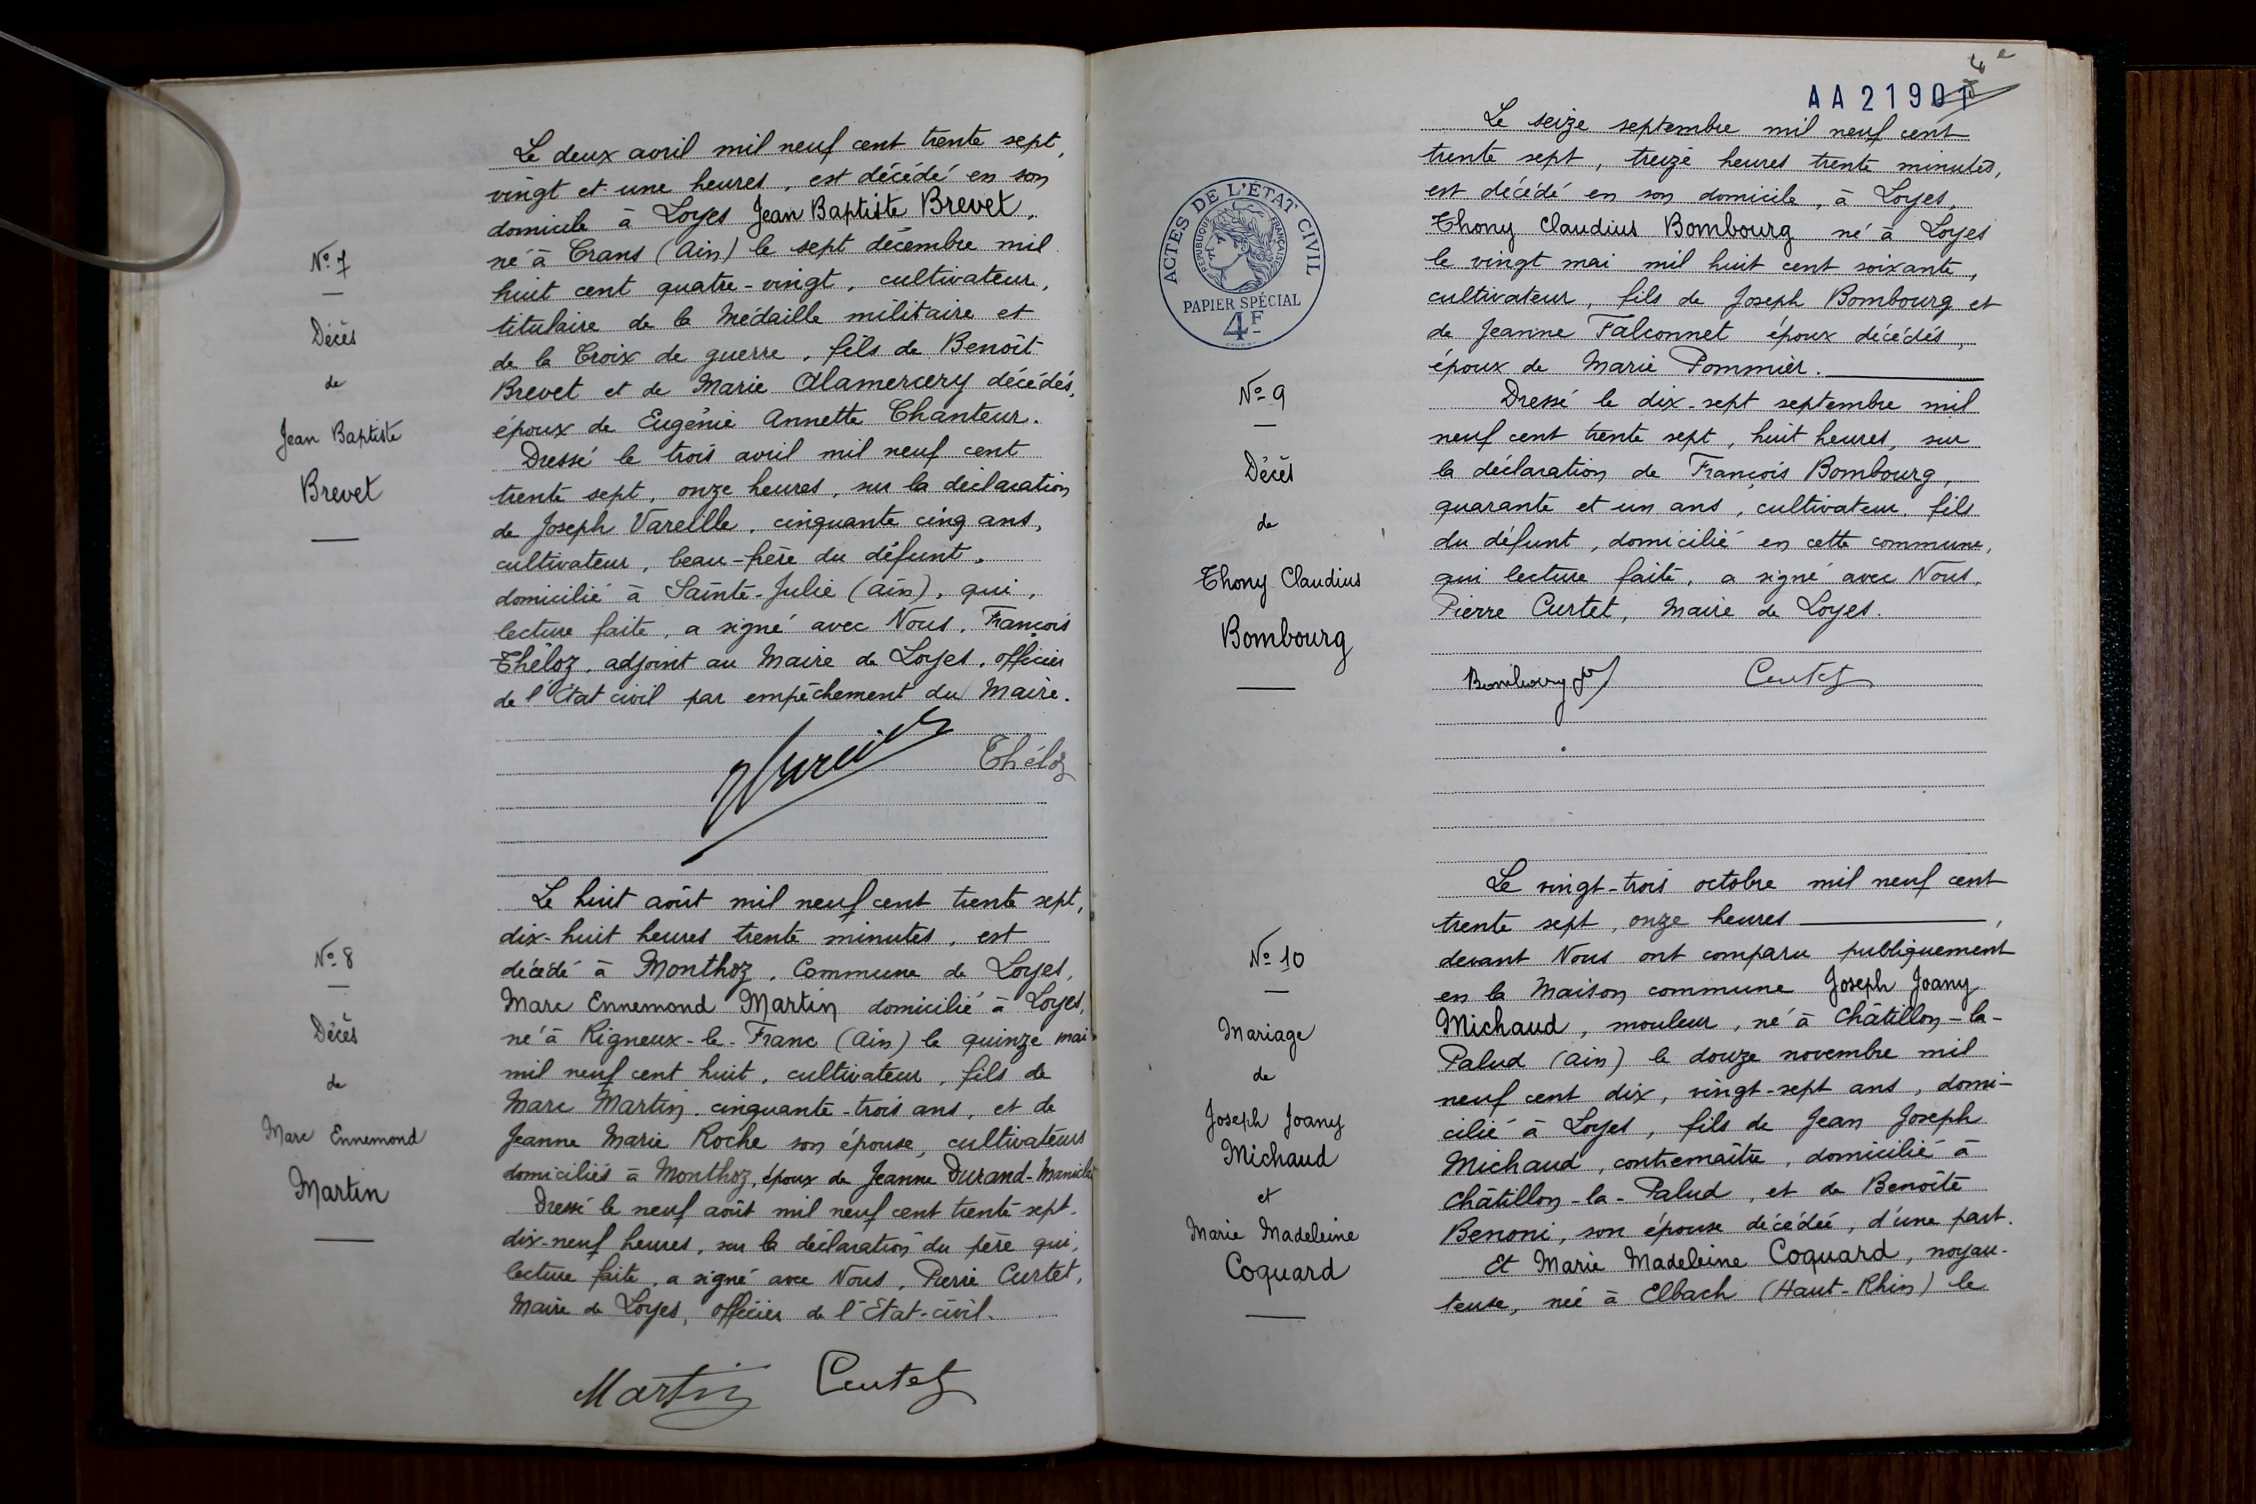 N° 7
Décès
de
Jean Baptiste
Brevet
Le deux avril mil neuf cent trente sept,
vingt et une heures, est décédé en son
domicile à Loyes Jean Baptiste Brevet,
né à Crans (Ain) le sept décembre mil
huit cent quatre-vingt, cultivateur,
titulaire de la Médaille militaire et
de la Croix de guerre, fils de Benoît
Brevet et de Marie Alamercery décédés,
époux de Eugénie Annette Chanteur.
Dressé le trois avril mil neuf cent
trente sept, onze heures, sur la déclaration
de Joseph Vareille, cinquante cinq ans,
cultivateur, beau-frère du défunt,
domicilié à Sainte-Julie (Ain), qui,
lecture faite, a signé avec Nous, François
Théloz, adjoint au Maire de Loyes, officier
de l'Etat civil par empêchement du Maire.
Théloz
N° 8
Décès
de
Marc Ennemond
Martin
Le huit août mil neuf cent trente sept,
dix-huit heures trente minutes, est
décédé à Monthoz, Commune de Loyes,
Marc Ennemond Martin domicilié à Loyes,
né à Rigneux-le-Franc (Ain) le quinze mai
mil neuf cent huit, cultivateur, fils de
Marc Martin, cinquante-trois ans, et de
Jeanne Marie Roche son épouse, cultivateurs
domiciliés à Monthoz, époux de Jeanne Durand-
Dressé le neuf août mil neuf cent trente sept,
dix-neuf heures, sur la déclaration du père qui,
lecture faite, a signé avec Nous, Pierre Curtet,
Maire de Loyes, officier de l'Etat-civil.
Martin Curtet
AA 21901
4e
ACTES DE L'ÉTAT CIVIL
RÉPUBLIQUE FRANÇAISE
PAPIER SPÉCIAL
4F
N° 9
Décès
de
Thony Claudius
Bombourg
Le seize septembre mil neuf cent
trente sept, treize heures trente minutes,
est décédé en son domicile, à Loyes,
Thony Claudius Bombourg né à Loyes
le vingt mai mil huit cent soixante,
cultivateur, fils de Joseph Bombourg et
de Jeanne Falconnet époux décédés,
époux de Marie Pommier.
Dressé le dix-sept septembre mil
neuf cent trente sept, huit heures, sur
la déclaration de François Bombourg,
quarante et un ans, cultivateur, fils
du défunt, domicilié en cette commune,
qui lecture faite, a signé avec Nous,
Pierre Curtet, Maire de Loyes.
Bombourg Curtet
N° 10
Mariage
de
Joseph Joany
Michaud
et
Marie Madeleine
Coquard
Le vingt-trois octobre mil neuf cent
trente sept, onze heures ,
devant Nous ont comparu publiquement
en la Maison commune Joseph Joany
Michaud, mouleur, né à Châtillon-la-
Palud (Ain) le douze novembre mil
neuf cent dix, vingt-sept ans, domi-
cilié à Loyes, fils de Jean Joseph
Michaud, contremaître, domicilié à
Châtillon-la-Palud, et de Benoîte
Benoni, son épouse décédée, d'une part.
Et Marie Madeleine Coquard, noyau-
teuse, née à Elbach (Haut-Rhin) le